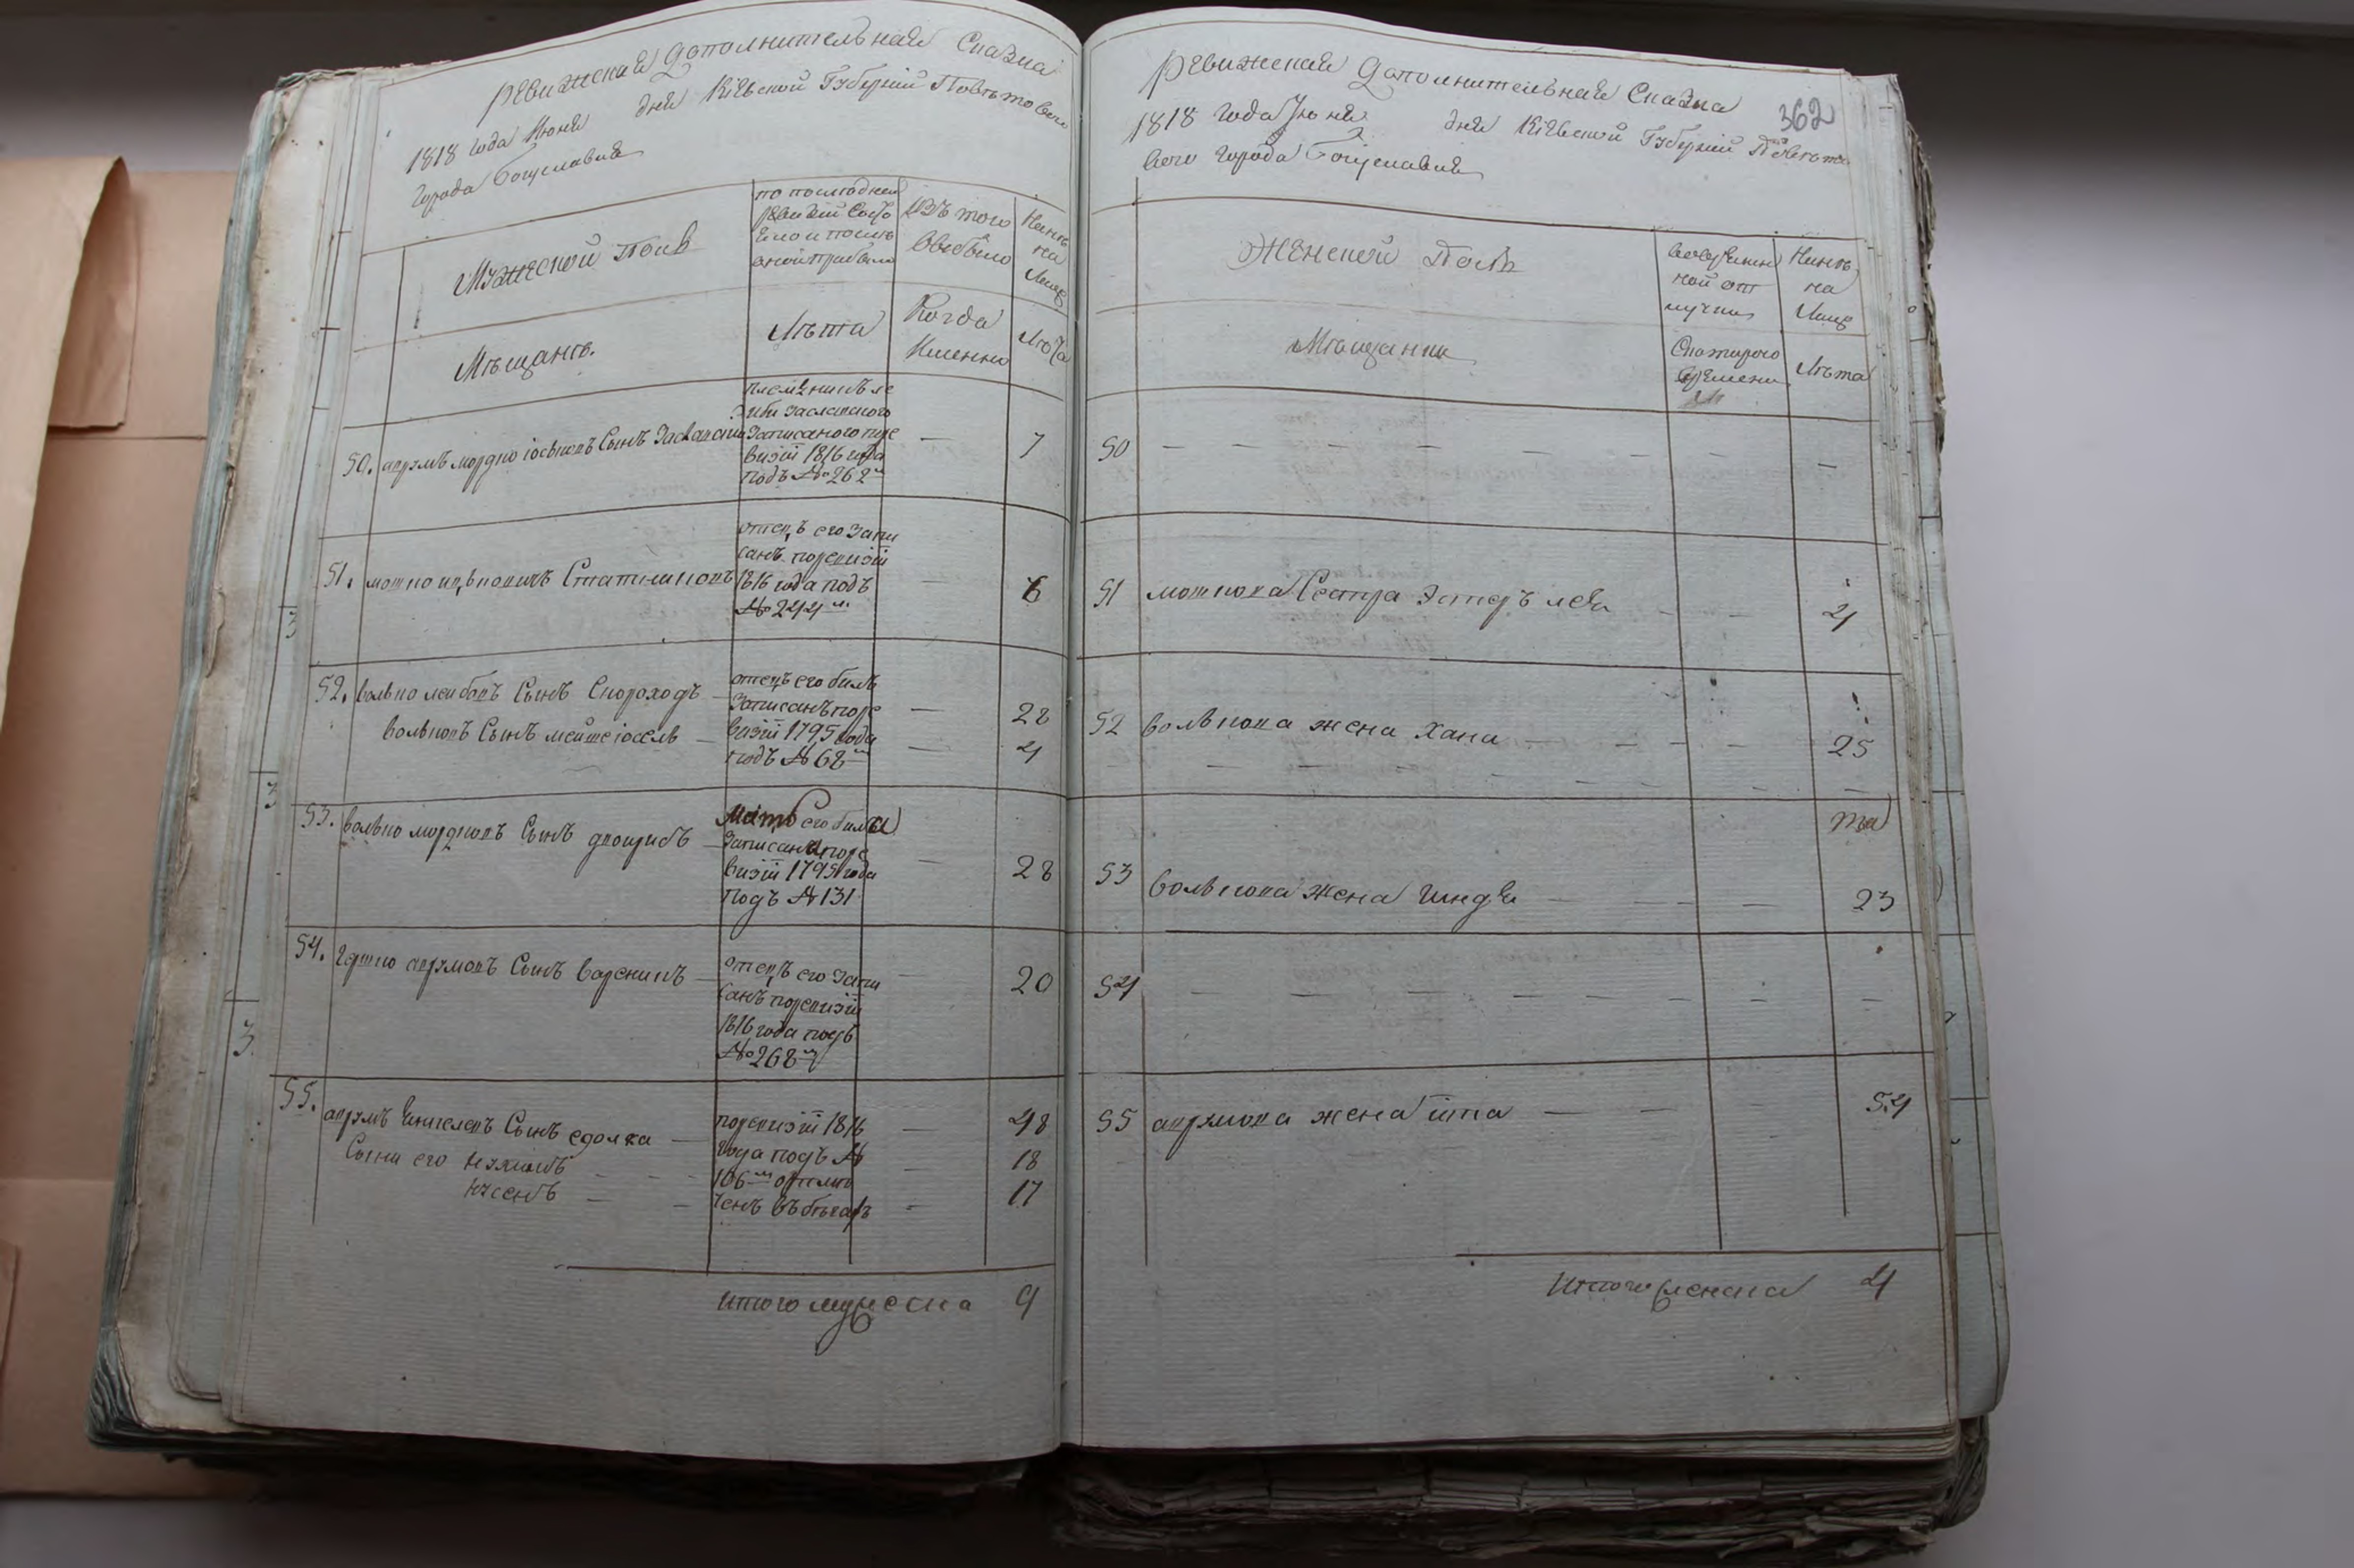 Ревижская дополнительная Сказка
1818 года Июня дня Кіевской Губерніи Повѣтового
города Богуславля
Мужеской Полъ
по последней
ревизіи состо
яло и послѣ
оной прибыло
Изъ того
Выбыло
Нынѣ
на
Лице
Мѣщанъ.
Лѣта
Когда
Именно
Лѣта
50. аврумъ мордко іоськовъ Сынъ Заславски
племенникъ ле
Заславского
Записаного поре
визіи 1816 года
подъ № 262м
— 7
51. мошко ицьковичъ
отецъ его запи
санъ поревизіи
1816 года подъ
№ 244м
— 6
52. волько лейбовъ Сынъ Скороходъ —
вольковъ Сынъ мейше іосель —
отецъ его билъ
Записанъ поре
визіи 1795 года
подъ № 68м
— 28
— 4
53. волько мордковъ Сынъ —
Мать его била
Записана поре
визіи 1795 года
Подъ № 131
— 28
54. гершко аврумовъ Сынъ вареникъ —
отецъ его запи
санъ поревизіи
1816 года подъ
№ 268м
— 20
55. аврумъ Сынъ едолка —
Сыни его —
—
поревизіи 1816
года подъ №
106м отлу
ченъ въ бѣгахъ
— 48
— 18
— 17
Итого мужеска 9
Ревижская дополнительная Сказка
362
1818 года Июня дня Кіевской Губерніи Повѣто
вого города Богуславля
Женской Полъ
во временн
ной от
лучки
Нынѣ
на
Лице
Мѣщанки
Скоторого
времени
Лѣта
50 — — — — — — — —
51 мошкова Сестра Эстеръ лея — — 4
52 волькова жена Хана — — — — 25
— — — — — — — —
53 волькова жена гиндя — — — 23
54 — — — — — — — —
55 аврумова жена ита — — 54
Итого женска 4